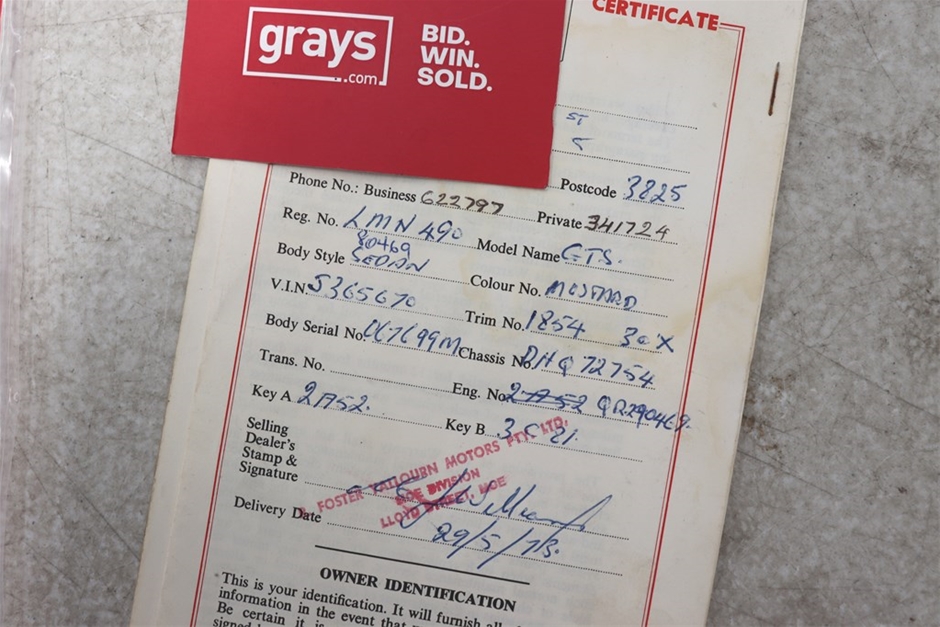 CERTIFICATE
grays
.com
BID.
WIN.
SOLD.
ST
Postcode 3825
Phone No.: Business 622797 Private 341724
Reg. No. LMN 490 Model Name G.T.S.
80469
Body Style SEDAN Colour No. MUSTARD
V.I.N. 5365670 Trim No. 1854 30X
Body Serial No. Chassis No. 72754
Trans. No. Eng. No. 2A52 QR290468
Key A 2A52. Key B
Selling
Dealer's
Stamp &
Signature
FOSTER MOTORS PTY. LTD.
DIVISION
LLOYD STREET, MOE
Delivery Date 29/5/73.
OWNER IDENTIFICATION
This is your identification. It will furnish
information in the event that
Be certain it is